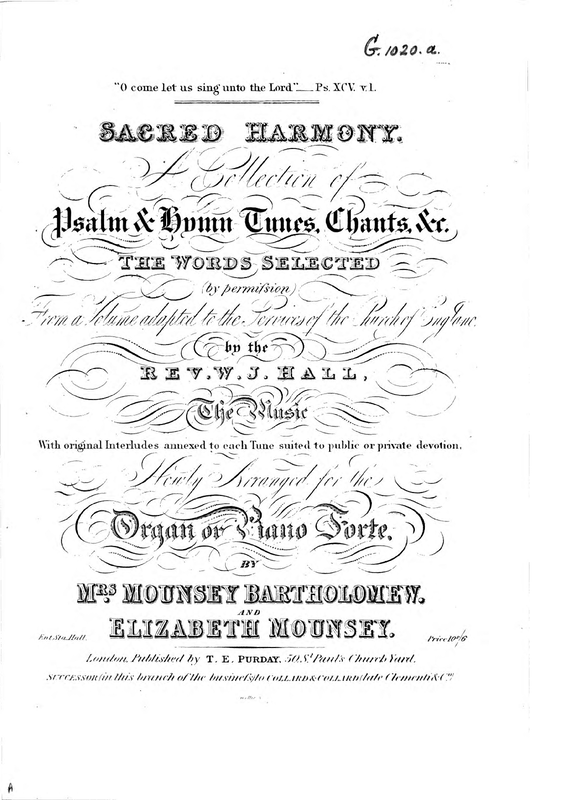 G. 1020. a.
"O come let us sing unto the Lord."___ Ps. XCV. v.1.
SACRED HARMONY.
A Collection of
Psalm & Hymn Tunes, Chants, &c.
THE WORDS SELECTED
(by permiſsion)
From a Volume adapted to the Services of the Church of England
by the
REV. W. J. HALL,
The Music
With original Interludes annexed to each Tune suited to public or private devotion,
Newly Arranged for the
Organ or Piano Forte,
BY
MRS MOUNSEY BARTHOLOMEW,
AND
ELIZABETH MOUNSEY.
Ent. Sta. Hall.
Price 10s/6
London, Published by T. E. PURDAY, 50, St Paul's Church Yard.
SUCCESSOR (in this branch of the busineſs) to COLLARD & COLLARD (late Clementi & Co.)
A